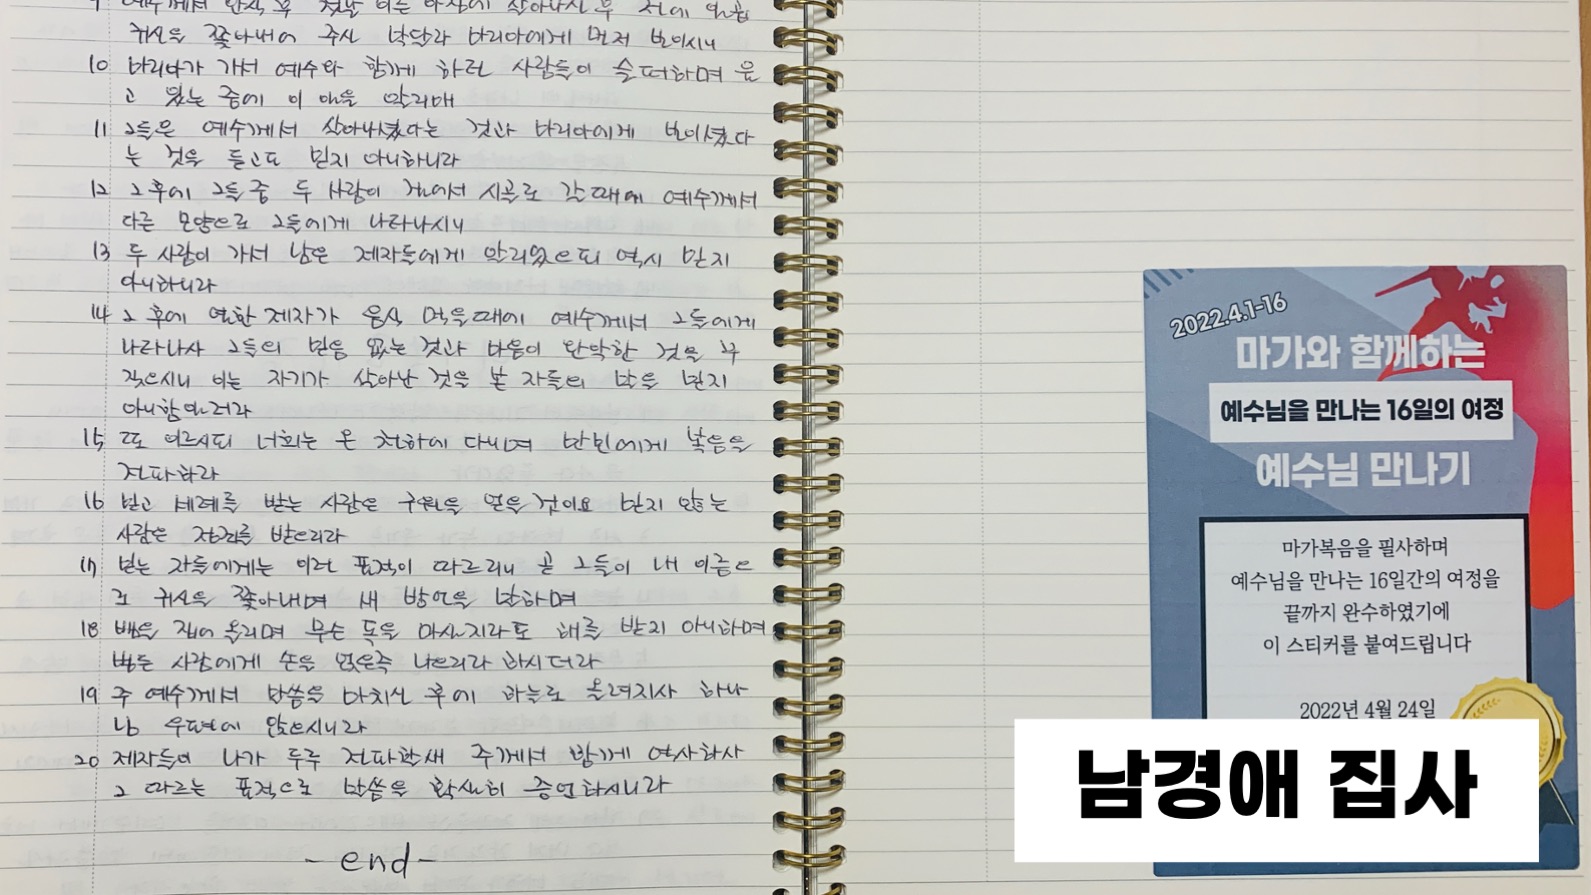 9 예수께서 안식 후 첫날 이른 아침에 살아나신 후 전에 일곱
귀신을 쫓아내어 주신 막달라 마리아에게 먼저 보이시니
10 마리아가 가서 예수와 함께 하던 사람들이 슬퍼하며 울
고 있는 중에 이 일을 알리매
11 그들은 예수께서 살아나셨다는 것과 마리아에게 보이셨다
는 것을 듣고도 믿지 아니하니라
12 그 후에 그들 중 두 사람이 걸어서 시골로 갈 때에 예수께서
다른 모양으로 그들에게 나타나시니
13 두 사람이 가서 남은 제자들에게 알리었으되 역시 믿지
아니하니라
14 그 후에 열한 제자가 음식 먹을 때에 예수께서 그들에게
나타나사 그들의 믿음 없는 것과 마음이 완악한 것을 꾸
짖으시니 이는 자기가 살아난 것을 본 자들의 말을 믿지
아니함일러라
15 또 이르시되 너희는 온 천하에 다니며 만민에게 복음을
전파하라
16 믿고 세례를 받는 사람은 구원을 얻을 것이요 믿지 않는
사람은 정죄를 받으리라
17 믿는 자들에게는 이런 표적이 따르리니 곧 그들이 내 이름으
로 귀신을 쫓아내며 새 방언을 말하며
18 뱀을 집어 올리며 무슨 독을 마실지라도 해를 받지 아니하며
병든 사람에게 손을 얹은즉 나으리라 하시더라
19 주 예수께서 말씀을 마치신 후에 하늘로 올려지사 하나
님 우편에 앉으시니라
20 제자들이 나가 두루 전파할새 주께서 함께 역사하사
그 따르는 표적으로 말씀을 확실히 증언하시니라
- end -
2022.4.1-16
마가와 함께하는
예수님을 만나는 16일의 여정
예수님 만나기
마가복음을 필사하며
예수님을 만나는 16일간의 여정을
끝까지 완수하였기에
이 스티커를 붙여드립니다
2022년 4월 24일
남경애 집사